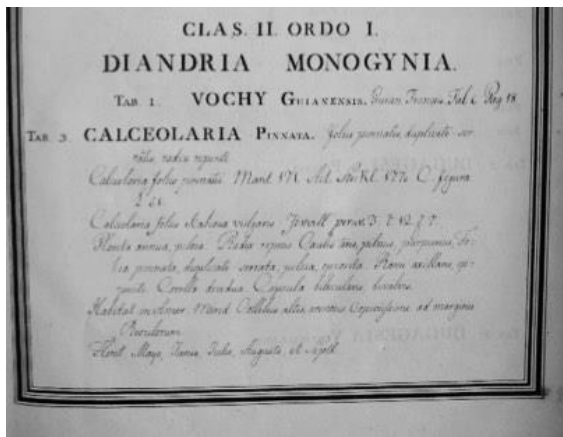 CLAS. II. ORDO I.
DIANDRIA MONOGYNIA.
TAB. 1. VOCHY GUIANENSIS. Guian. Tab. 6. Pag. 18.
TAB. 3. CALCEOLARIA PINNATA. foliis pinnatis duplicato ser-
ratis, radice repente
Calceolaria foliis pinnatis Mant. 171. Act. 1770. C. figura
Calceolaria foliis vulgaris. 3. t. 12. f. 7.
Planta annua, pilosa. Radix repens Caulis teres, pilosus, purpureus, Fo-
lia pinnata, duplicato serrata, pilosa, opposita. Rami axillares,
Corolla Capsula bilocularis, bivalvis.
Habitat in Amer. Merid. Collibus altis, ad margines
Rivulorum.
Floret Mayo, Junio, Julio, Augusto, et Sept.